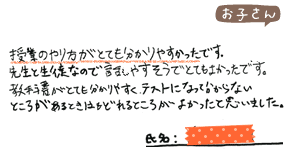 お子さん
授業のやり方がとても分かりやすかったです。
先生と生徒なので話しやすそうでとてもよかったです。
教科書がとても分かりやすく、テストになって分からない
ところがあるときはもどれるところがよかったと思いました。
氏名：